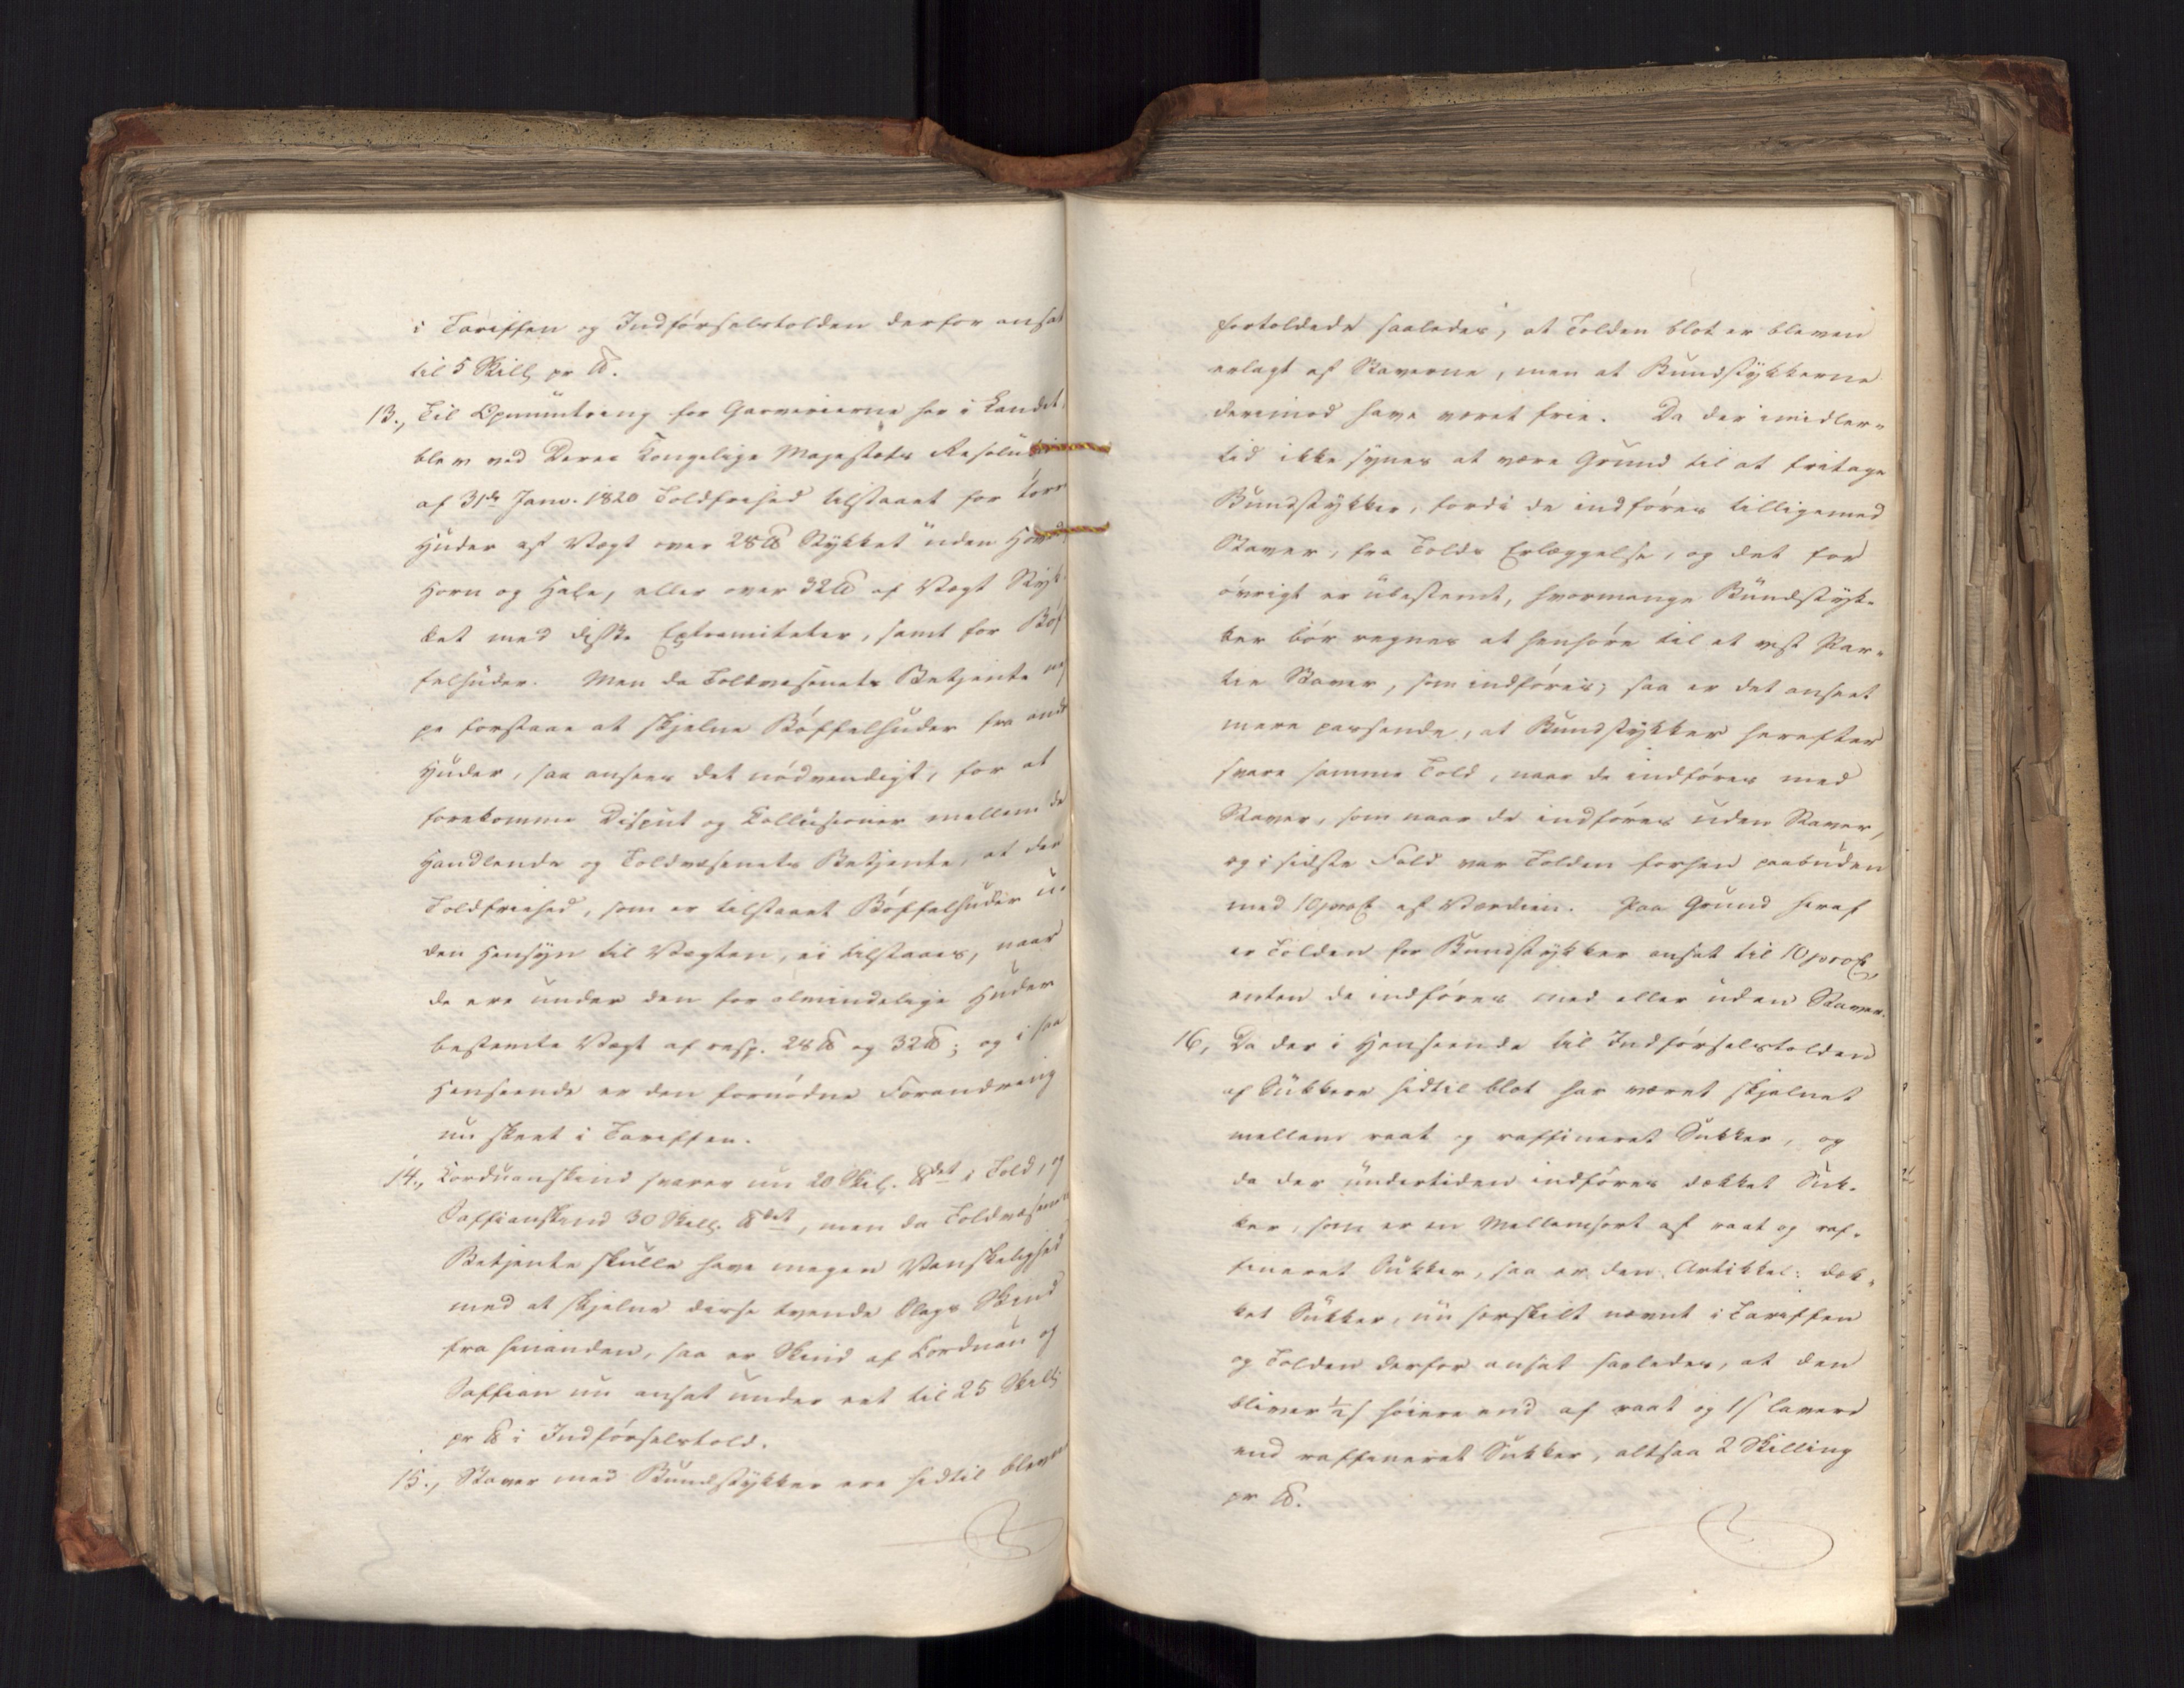 i Tariffen og Indförselstolden derfor ansat
til 5 Skill pr ℔.
13., Til Opmuntring for Garverierne her i Landet,
blev ved Deres Kongelige Majestæts Resolution
af 31te Janv. 1820 Toldfrihed tilstaaet for törre
Huder af Vægt over 28 ℔ Stykket uden Hoved,
Horn og Hale, eller over 32 ℔ af Vægt Styk-
ket med disse Extremiteter, samt for Böf-
felhuder. Men da Toldvæsenets Betjente nep-
pe forstaae at skjelne Böffelhuder fra andre
Huder, saa ansees det nödvendigt, for at
forekomme Disput og Collusioner mellem de
Handlende og Toldvæsenets Betjente, at den
Toldfrihed, som er tilstaaet Böffelhuder u-
den Hensyn til Vægten, ei tilstaaes, naar
de ere under den for almindelige Huder
bestemte Vægt af resp. 28 ℔ og 32 ℔; og i saa
Henseende er den fornödne Forandring
nu skeet i Tariffen.
14., Corduanskind svarer nu 20 Skil. ℔det i Told, og
Saffianskind 30 Skill. ℔det, men da Toldvæsenets
Betjente skulle have megen Vanskelighed
med at skjelne disse tvende Slags Skind
fra hinanden, saa er Skind af Corduan og
Saffian nu ansat under eet til 25 Skill
pr ℔ i Indförselstold.
15., Staver med Bundstykker ere hidtil blevne
fortoldede saaledes, at Tolden blot er bleven
erlagt af Staverne, men at Bundstykkerne
derimod have været frie. Da der imidler-
tid ikke synes at være Grund til at fritage
Bundstykker, fordi de indföres tilligemed
Staver, fra Tolds Erlæggelse, og det for
övrigt er ubestemt, hvormange Bundstyk-
ker bör regnes at henhöre til et vist Par-
tie Staver, som indföres; saa er det anseet
mere passende, at Bundstykker herefter
svare samme Told, naar de indföres med
Staver, som naar de indföres uden Staver,
og i sidste Fald var Tolden forhen paabuden
med 10 proCt af Værdien. Paa Grund heraf
er Tolden for Bundstykker ansat til 10 proCt,
enten de indföres med eller uden Staver.
16, Da der i Henseende til Indförselstolden
af Sukkere hidtil blot har været skjelnet
mellem raat og raffineret Sukker, og
da der undertiden indföres dækket Suk-
ker, som er en Mellemsort af raat og raf-
fineret Sukker, saa er den Artikkel: dæk-
ket Sukker, nu særskilt nævnt i Tariffen
og Tolden derfor ansat saaledes, at den
bliver ½ s höiere end af raat og 1 s lavere
end raffineret Sukker, altsaa 2 Skilling
pr ℔.